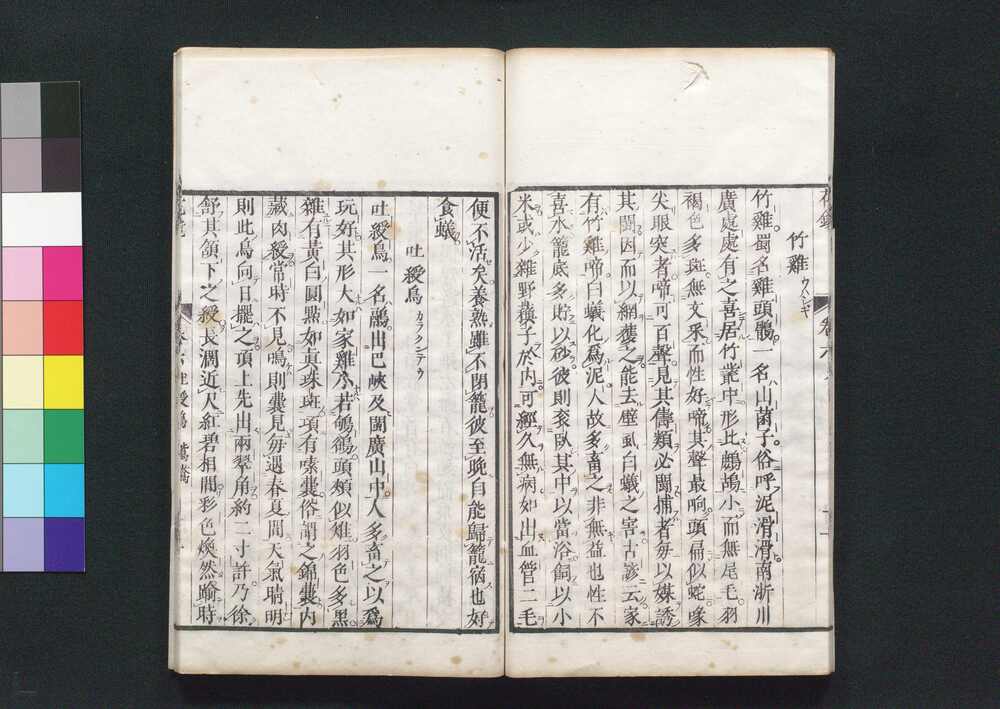 竹雞 ウンシギ
竹雞蜀名雞頭鶻一名山菌子俗呼泥滑滑南浙川
廣處處有之喜居竹叢中形比鷓鴣小而無尾毛羽
褐色多斑無文采而性好啼其聲最响頭扁似蛇喙
尖眼突者啼可百聲見其儔類必鬪捕者每以媒誘
其鬪因而以網獲之能去壁虱白蟻之害古諺云家
有竹雞啼白蟻化爲泥人故多畜之非無益也性不
喜水籠底多貯以砂彼則衮臥其中以當浴飼以小
米或少雜野蘱子於內可經久無病如出血管二毛
便不活矣養熟雖不閉籠彼至晚自能歸籠宿也好
食蟻
吐綬鳥 カラクンテウ
吐綬鳥一名鷊出巴峽及閩廣山中人多畜之以爲
玩好其形大如家雞小若鴝鵒頭頰似雉羽色多黑
雜有黃白圓點如真珠斑項有嗉囊俗謂之錦囊內
藏肉綬當時不見鳴則囊見每遇春夏間天氣晴明
則此鳥向日擺之項上先出兩翠角約二寸許乃徐
舒其頷下之綬長濶近尺紅碧相間彩色煥然踰時